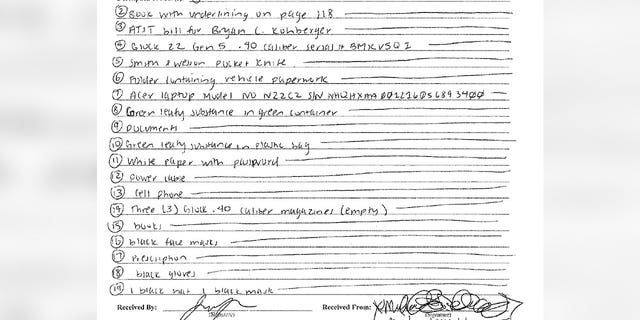 ② Book with underlining on page 118
③ AT&T bill for Bryan C. Kohberger
④ Glock 22 Gen 5 .40 caliber serial #
⑤ Smith & Wesson pocket knife
⑥ Folder containing vehicle paperwork
⑦ Acer laptop Model NO N22C2 S/N
⑧ Green leafy substance in green container
⑨ Documents
⑩ Green leafy substance in plastic bag
⑪ White paper with password
⑫ power cable
⑬ cell phone
⑭ Three (3) Glock .40 caliber magazines (empty)
⑮ books
⑯ black face masks
⑰ Prescription
⑱ black gloves
⑲ 1 black hat 1 black mask
Received By: Received From:
(Signature) (Signature)